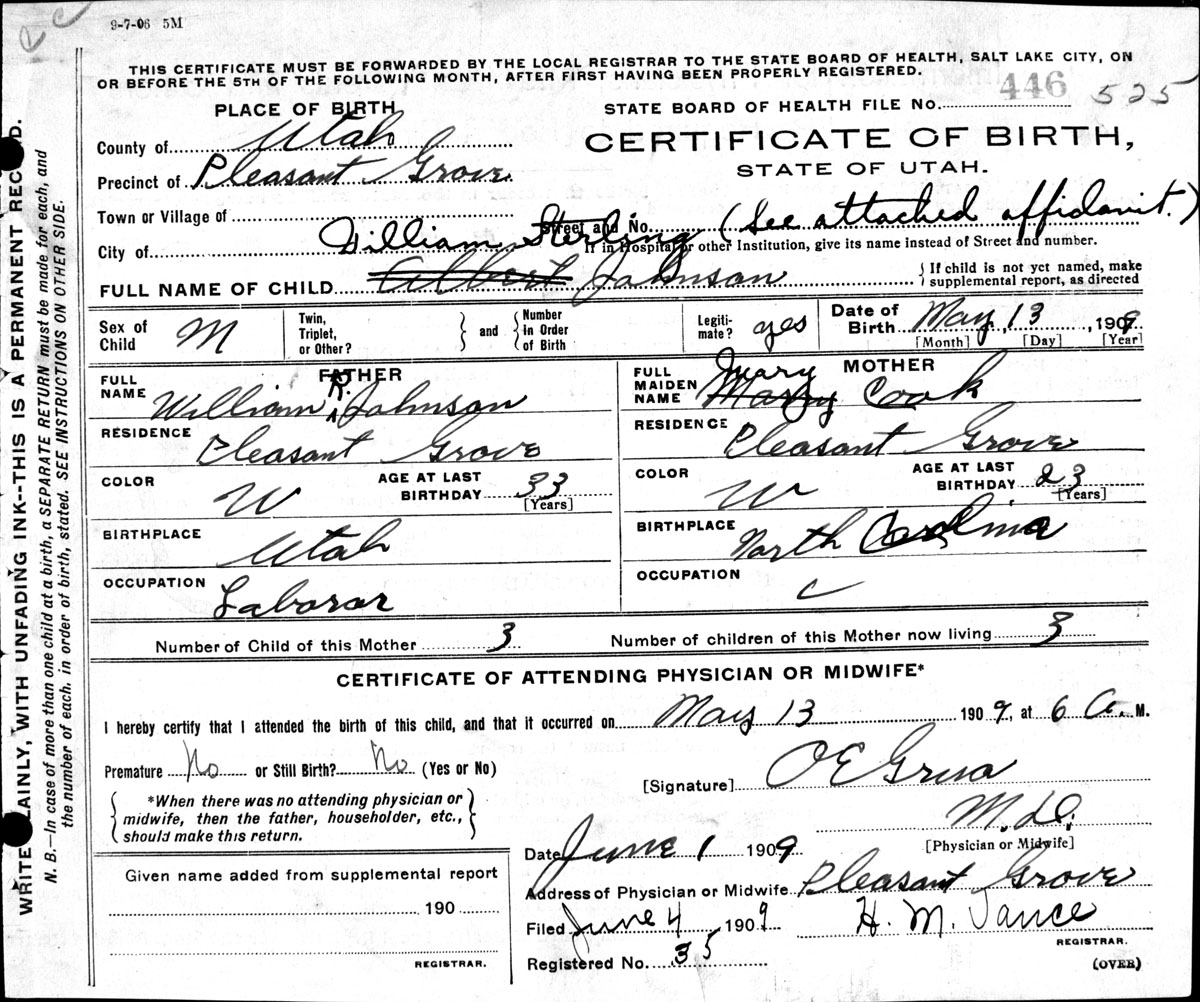 9-7-06 5M
THIS CERTIFICATE MUST BE FORWARDED BY THE LOCAL REGISTRAR TO THE STATE BOARD OF HEALTH, SALT LAKE CITY, ON
OR BEFORE THE 5TH OF THE FOLLOWING MONTH, AFTER FIRST HAVING BEEN PROPERLY REGISTERED.
PLACE OF BIRTH
STATE BOARD OF HEALTH FILE No. 446 525
County of Utah
CERTIFICATE OF BIRTH,
STATE OF UTAH.
Precinct of Pleasant Grove
Town or Village of
Street and No. (See attached affidavit.)
City of William Sterling
If in Hospital or other Institution, give its name instead of Street and number.
FULL NAME OF CHILD Albert Johnson
{If child is not yet named, make
supplemental report, as directed
Sex of
Child M
Twin,
Triplet,
or Other?
} and {
Number
in Order
of Birth
Legiti-
mate? yes
Date of
Birth May 13, 1909
[Month] [Day] [Year]
FATHER
FULL
NAME William R. Johnson
RESIDENCE Pleasant Grove
COLOR W
AGE AT LAST
BIRTHDAY 33
[Years]
BIRTHPLACE Utah
OCCUPATION Laboror
MOTHER
FULL
MAIDEN
NAME Mary Cook
RESIDENCE Pleasant Grove
COLOR W
AGE AT LAST
BIRTHDAY 23
[Years]
BIRTHPLACE North Carolina
OCCUPATION
Number of Child of this Mother 3
Number of children of this Mother now living 3
CERTIFICATE OF ATTENDING PHYSICIAN OR MIDWIFE*
I hereby certify that I attended the birth of this child, and that it occurred on May 13 1909, at 6 A. M.
Premature No or Still Birth? No (Yes or No)
{*When there was no attending physician or
midwife, then the father, householder, etc.,
should make this return.}
[Signature] O E Grua
M.D.
[Physician or Midwife]
Date June 1 1909
Address of Physician or Midwife Pleasant Grove
Given name added from supplemental report
190
REGISTRAR.
Filed June 4 1909 H. M. Vance
REGISTRAR.
Registered No. 35
(OVER)
WRITE PLAINLY, WITH UNFADING INK--THIS IS A PERMANENT RECORD.
N. B.—In case of more than one child at a birth, a SEPARATE RETURN must be made for each, and
the number of each, in order of birth, stated. SEE INSTRUCTIONS ON OTHER SIDE.